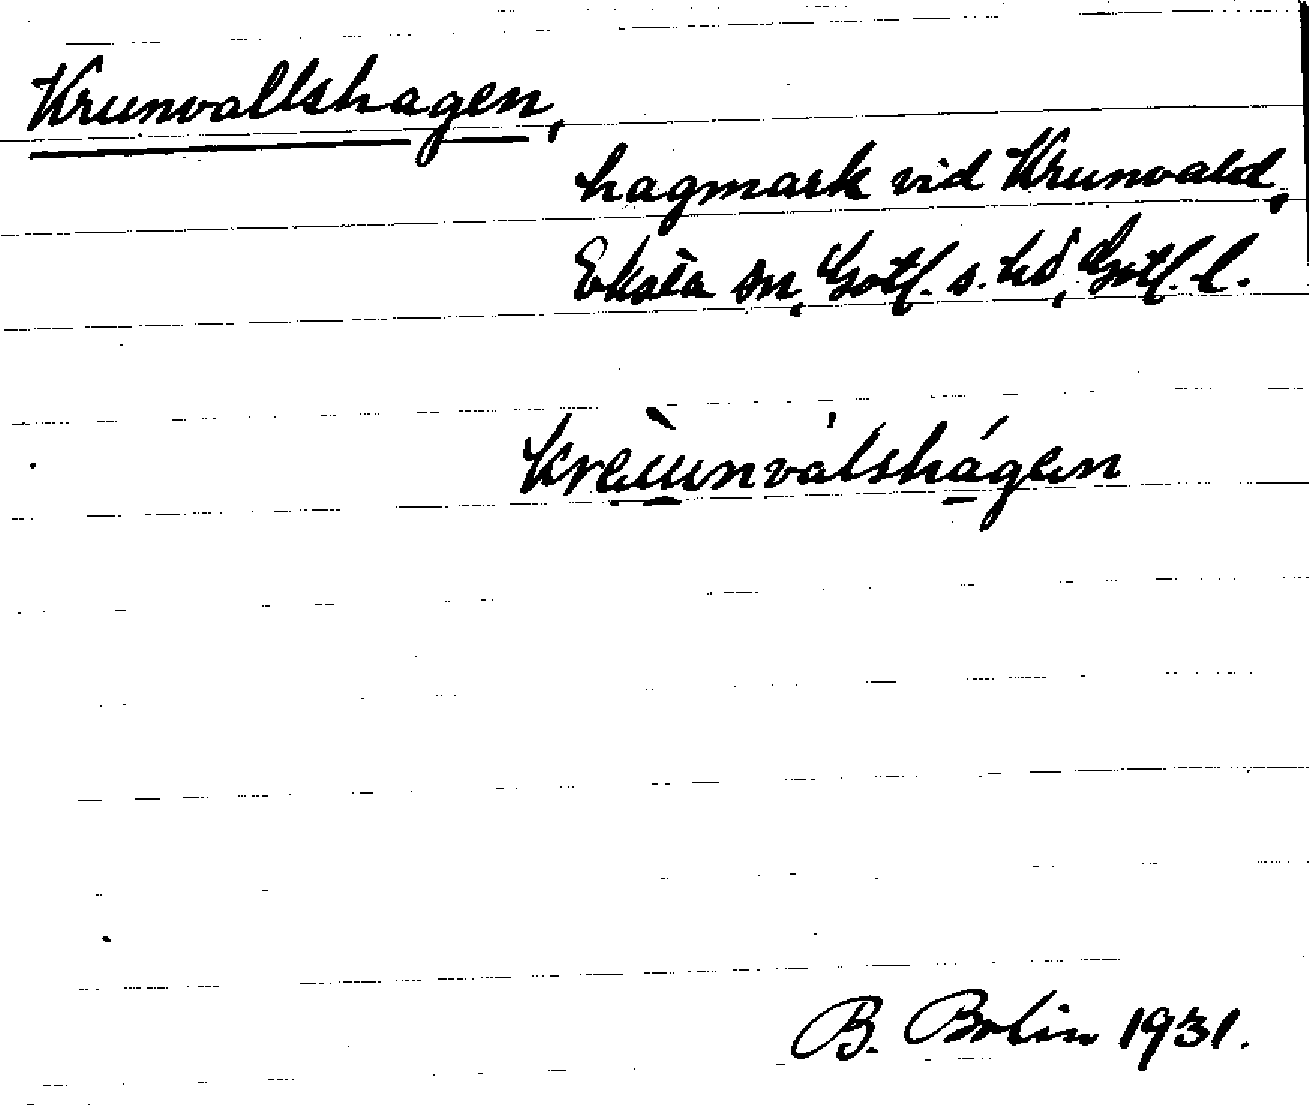 Krunvallshagen,
hagmark vid Krunvald,
Eksta sn, Gotl. s. hd, Gotl. l.
B. Bolin 1931.